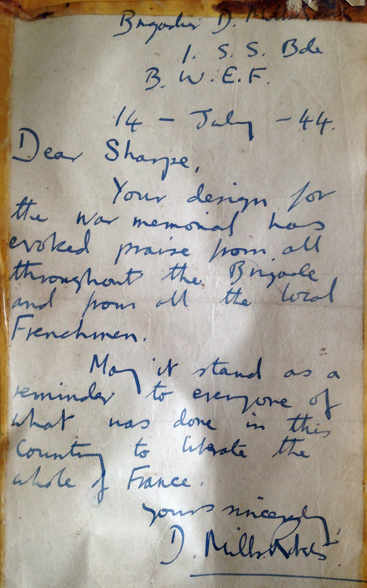 Brigadier D. Mills
1. S. S. Bde
B. W. E. F.
14 - July - 44.
Dear Sharpe,
Your design for
the war memorial has
evoked praise from all
throughout the Brigade
and from all the local
Frenchmen.
May it stand as a
reminder to everyone of
what was done in this
Country to liberate the
whole of France.
yours sincerely,
D. Mills Roberts.